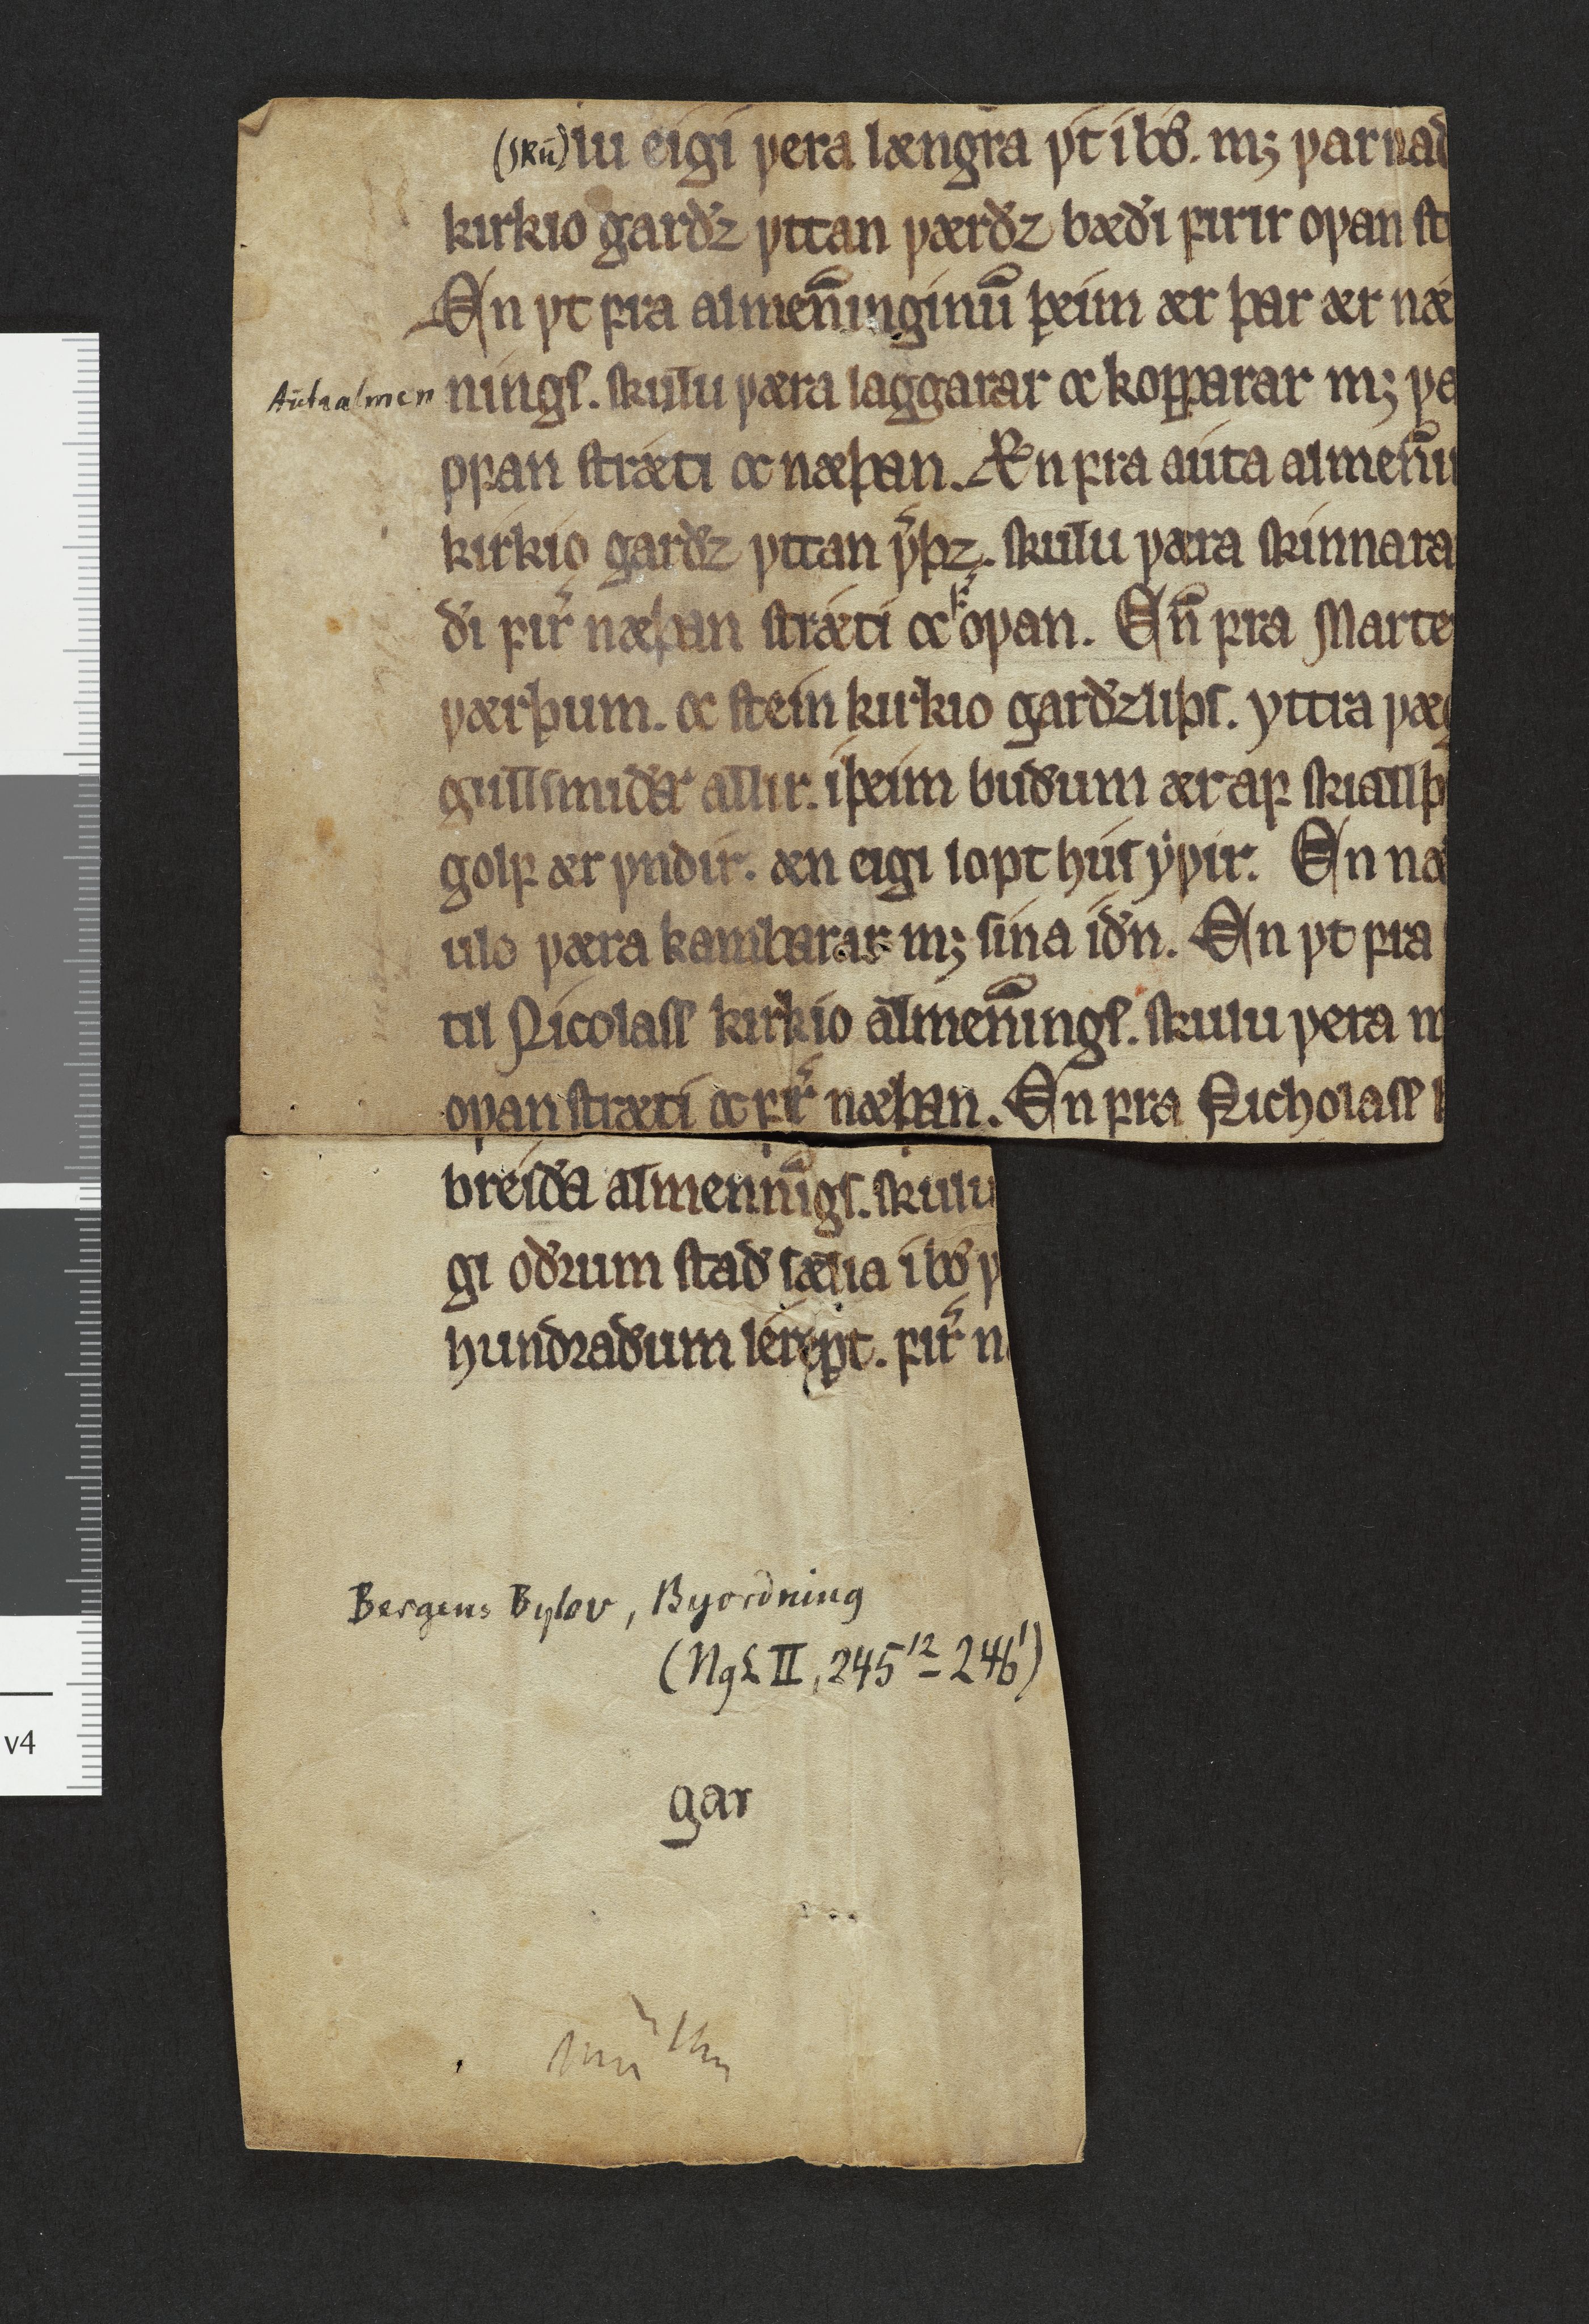 (skú)lu eigi ꝩera længra ẏt ibǿ. mꝫ ꝩarnad
kirkio garðz ẏttan ꝩærðz bæði ꝼirir oꝩan st
En ẏt ꝼra almen̄inginū þeim ær þar ær næ
Autaalmen nings. skulu ꝩæra laggarar oc kopparar mꝫ ꝩa
oꝼan stræti oc næþan. Æn ꝼra auta almen̄i
kirkio garðz ẏttan ꝩ͛þz. skulu ꝩæra skinnara
ði ꝼir͛ næþan stræti oc ꝼ͛ oꝩan. En̄ ꝼra Marte
ꝩærþum. oc stein kirkio garðzliþs. ẏttra ꝩæg
gullsmiðar allir. iþeim buðum ær aꝼ skiallþ
golꝼ ær ẏndir. æn eigi lopt hús ẏꝩir. En næ
ulo ꝩæra kambarar mꝫ sina iðn. En ẏt ꝼra
til Nicolass kirkio almen̄ings. skulu ꝩera m
oꝩan stræti oc ꝼir͛ næþan. En ꝼra Nicholass k
breiða almenni̅gs. skulu
gi oðrum stað sælia ibǿ ꝩ
hundraðum lérept. ꝼir͛ n
Bergens Bylov, Byordning
(NgL II, 245¹² – 246¹)
gar
v4